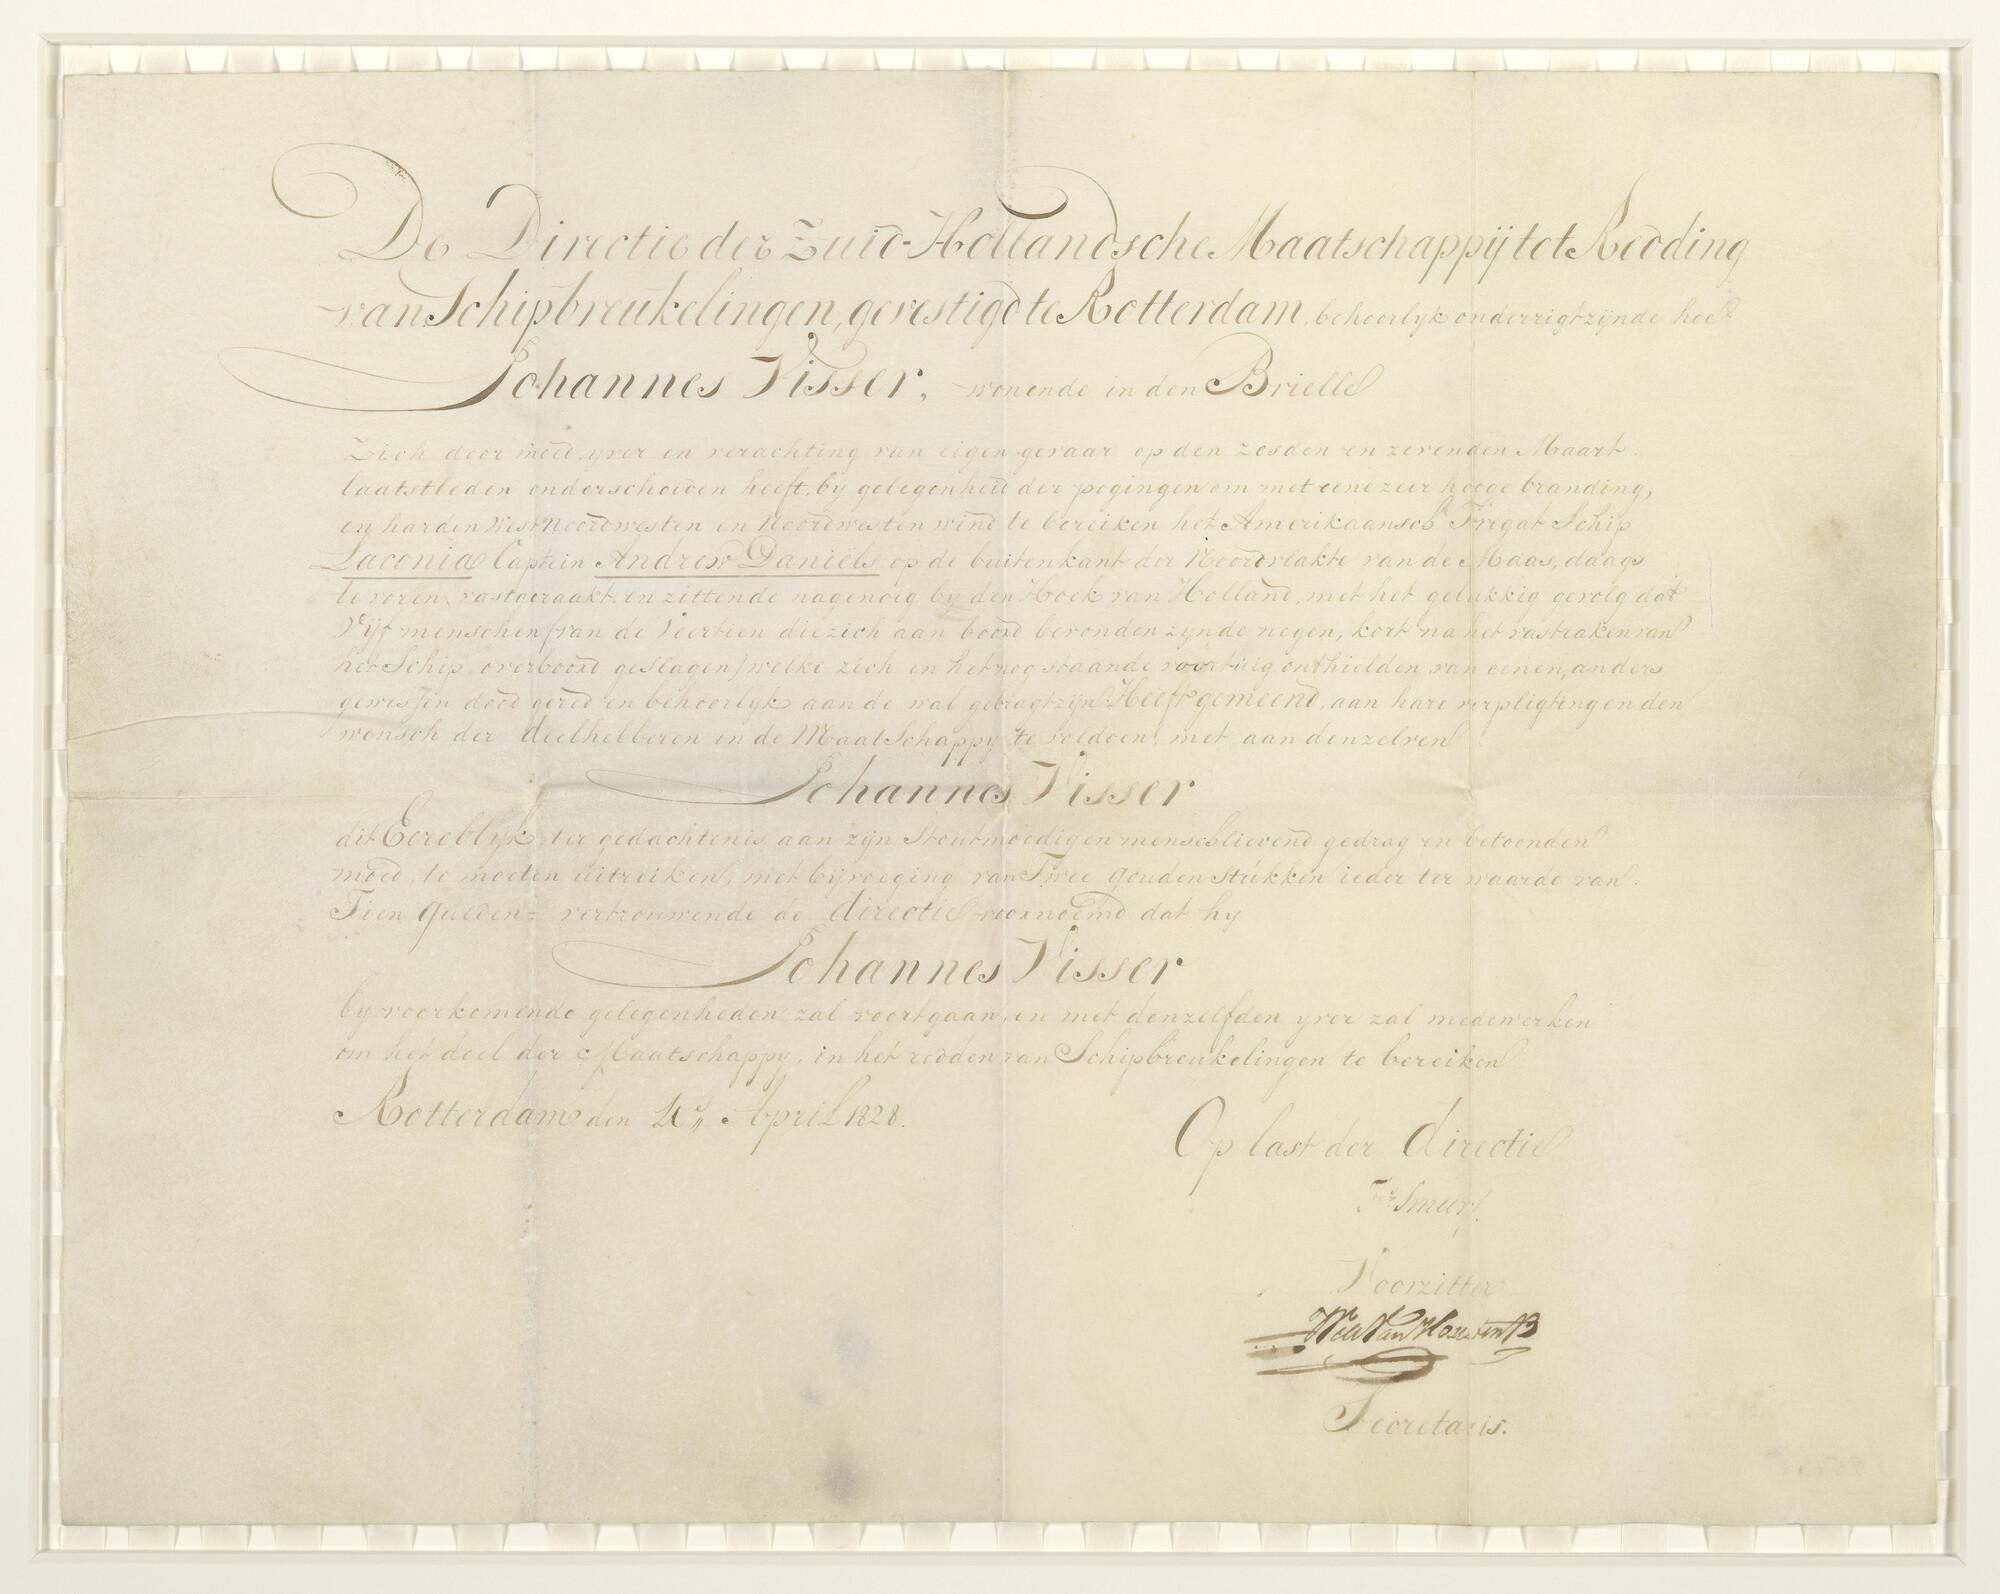 De Directie der Zuid-Hollandsche Maatschappij tot Redding
van Schipbreukelingen, gevestigd te Rotterdam, behoorlyk onderrigt zijnde hoe
Johannes Visser, wonende in den Brielle
Zich door moed, yver en verachting van eigen gevaar op den zesden en zevenden Maart
laatstleden onderscheiden heeft, by gelegenheid der pogingen om met eene zeer hooge branding,
en harden West Noordwesten en Noordwesten wind te bereiken het Amerikaansch Fregat Schip
Laconia Captein Andrew Daniëls op de buitenkant der Noordvlakte van de Maas, daags
te voren, vastgeraakt, en zittende nagenoeg by den Hoek van Holland, met het gelukkig gevolg dat
Vijf menschen (van de Veertien die zich aan boord bevonden zynde negen, kort na het vastraken van
het Schip overboord geslagen) welke zich in het nog staande voortuig onthielden van eenen, anders
gewissen dood gered en behoorlyk aan de wal gebragt zijn Heeft gemeend, aan hare verpligting en den
wensch der deelhebberen in de MaatSchappy te voldoen, met aan denzelven
Johannes Visser
dit Eereblyk, ter gedachtenis aan zijn Stoutmoedig en menschlievend gedrag en betoonden
moed, te moeten uitreiken, met bijvoeging van Twee gouden stukken ieder ter waarde van
Tien gulden= vertrouwende de directie voornoemd dat hy
Johannes Visser
by voorkomende gelegenheden zal voortgaan, en met denzelfden yver zal medewerken
om het doel der Maatschappy, in het redden van Schipbreukelingen te bereiken
Rotterdam den April 1828.
Op last der directie
Smeer
Voorzitter
Van
Secretaris.